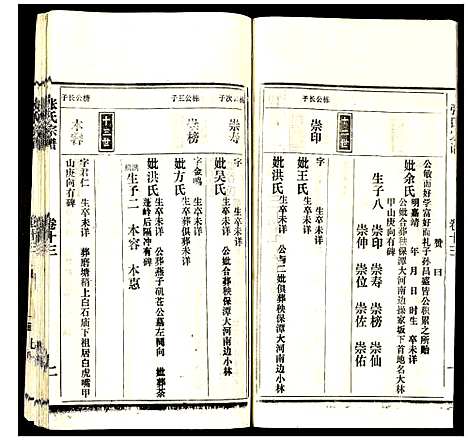 張氏宗譜
卷十三
贊曰
公敏而好學富好而礼子孙昌盛皆公积累之所贻
妣余氏
明嘉靖 年 月 日 时生 卒未详
公妣合葬秧保潭大河南边小林
甲山庚向有碑
生子八 崇印 崇寿 崇榜 崇仙
崇伸 崇位 崇佐 崇佑
十二世
栋公长子
崇印
生卒未详
妣王氏
生卒未详
妣洪氏
生卒未详 公与二妣俱葬秧保潭大河南边小林
次子
崇寿
生卒未详
妣吴氏
生卒未详 公妣合葬秧保潭大河南边小林
栋公三子
崇榜
字金鸣 生卒未详
妣方氏
生卒葬俱未详
妣洪氏
生卒未详 公葬燕子矶苍公墓左 向 妣葬茶
蓬岭后隔冲有碑
生子二 本容 本惠
十三世
榜公长子
本容
字君仁 生卒未详 葬磨塘稍上白石庙下祖居白虎嘴甲
山庚向有碑
张氏宗谱
卷十三